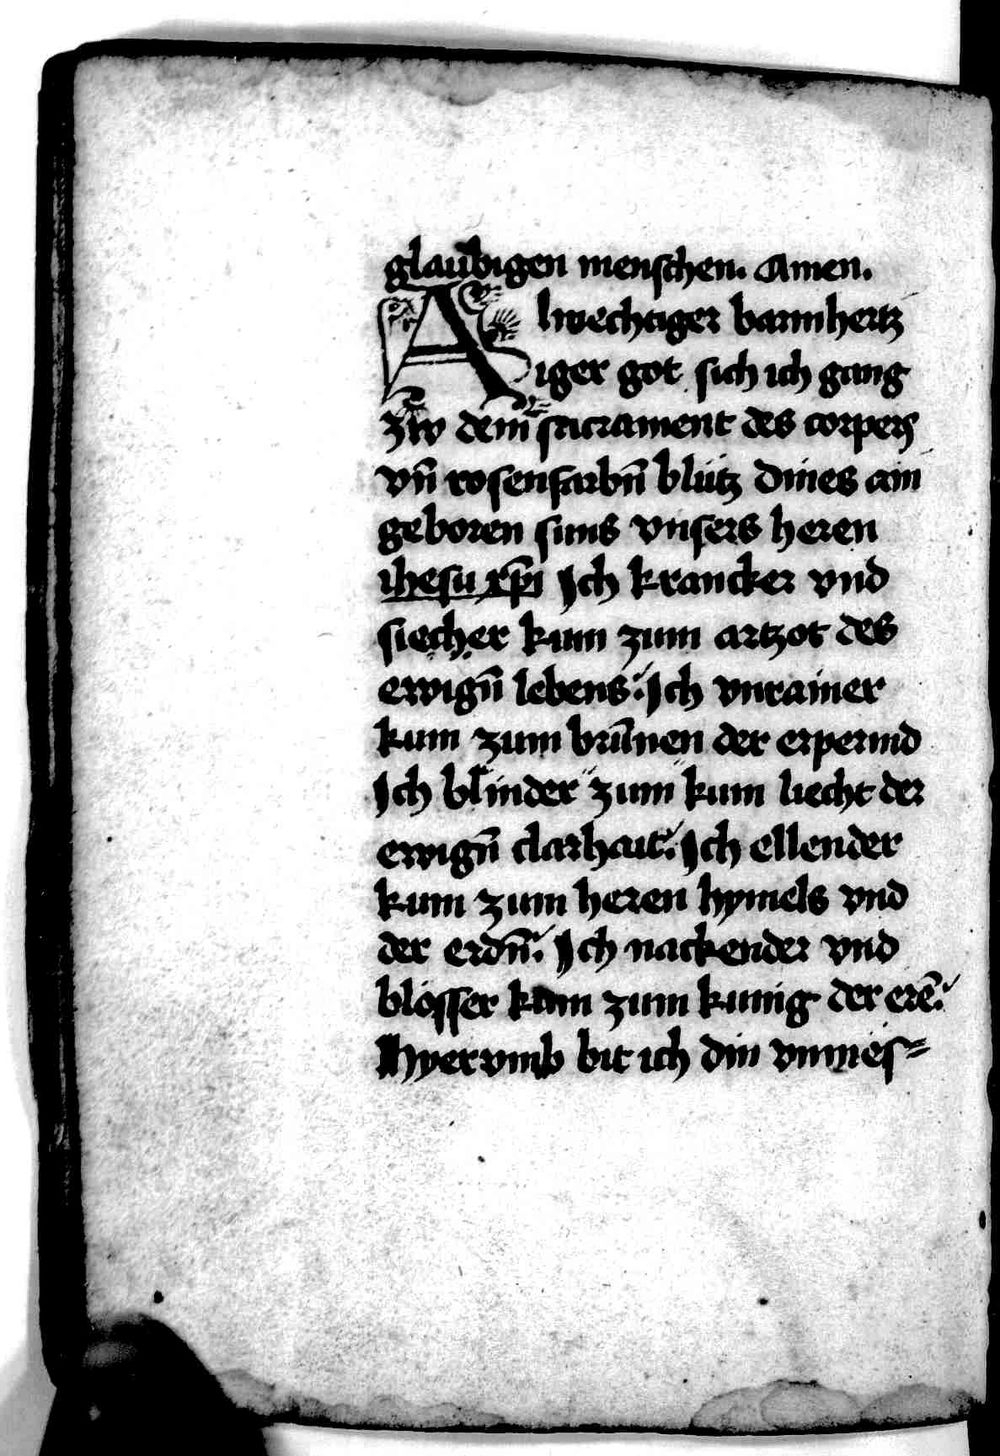 glaubigen menschen. Amen.
Almechtiger barmhertz
iger got sich ich gang
zů dem sacrament des corpers
vn̄ rosenfarbn̄ blůtz dines ain
geboren suns vnsers heren
ihesu xp̄i Ich krancker vnd
siecher kum zum artzot des
ewign̄ lebens. Ich vnrainer
kum zum brūnen der erpermd
Ich blinder zum kum liecht der
ewign̄ clarhait. Ich ellender
kum zum heren hymels vnd
der erdn̄. Ich nackender vnd
blosser kum zum kunig der erē.
Hyervmb bit ich din vnmes=